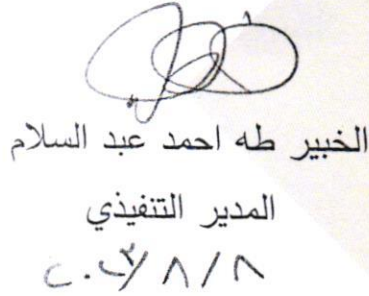 الخبير طه احمد عبد السلام
المدير التنفيذي
٢٠٢٣/٨/٨